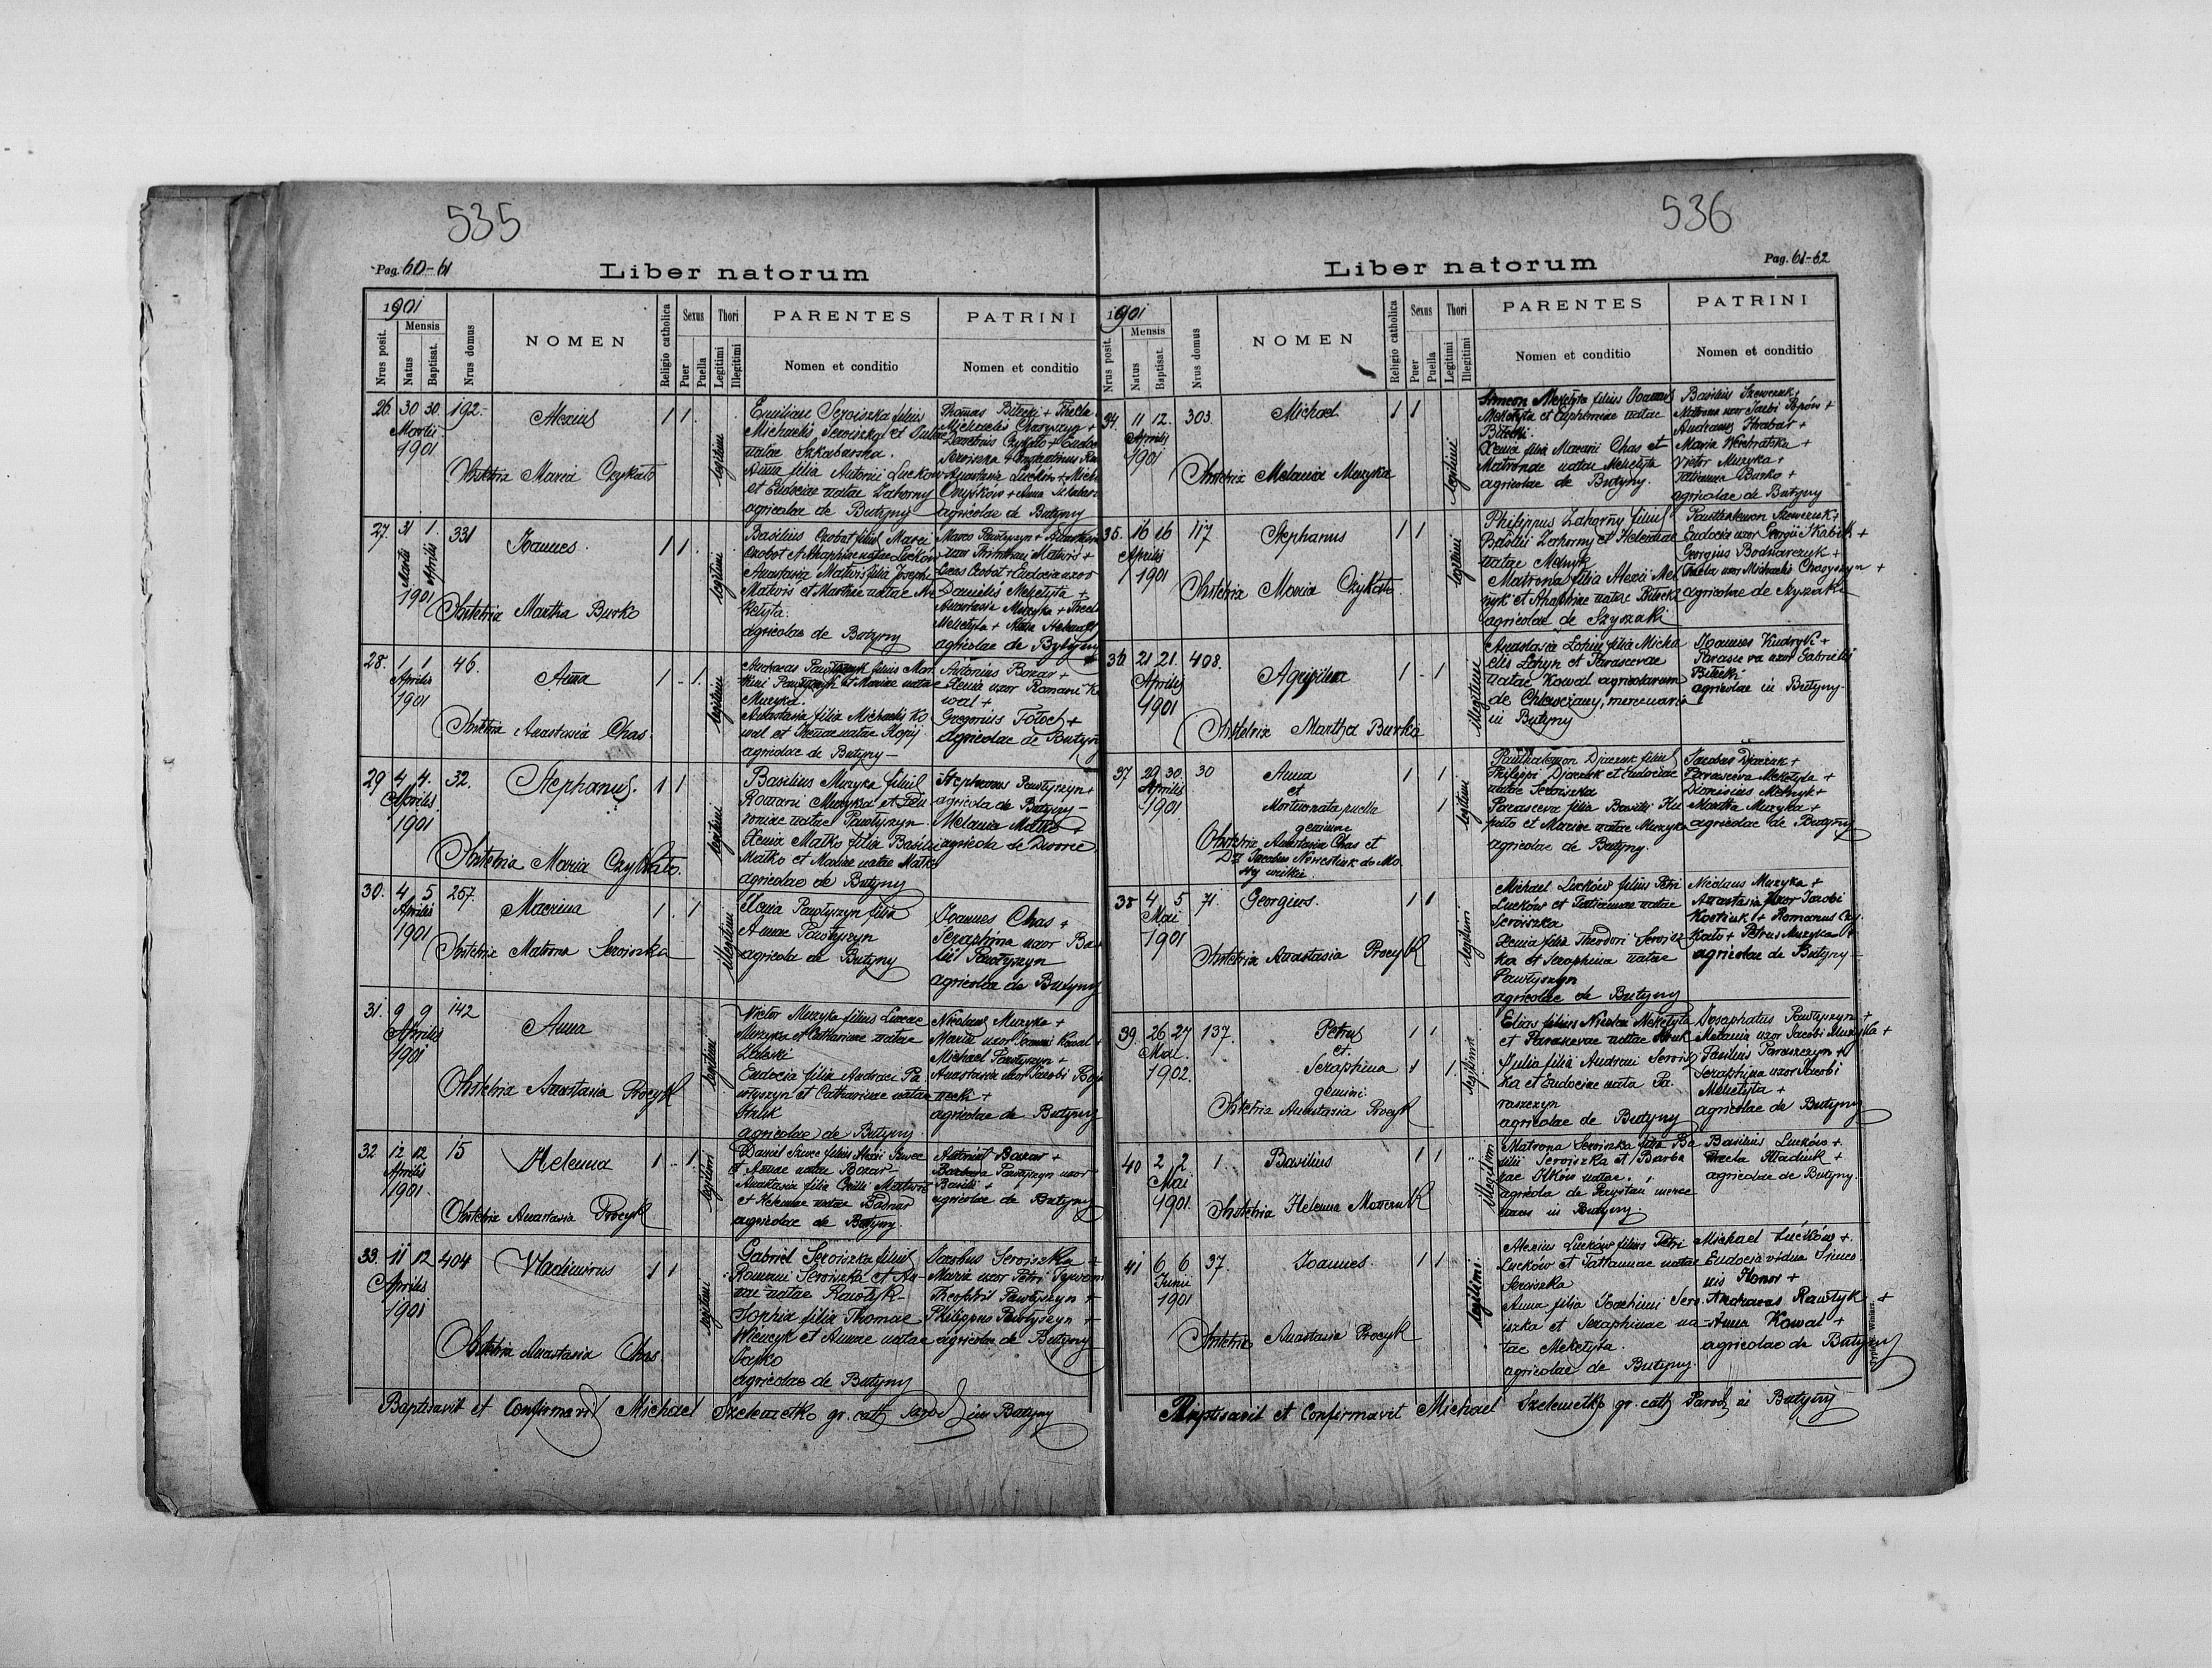 535
Pag. 60-61
Liber natorum
1901
Nrus posit.
Mensis
Natus
Baptisat.
Nrus domus
NOMEN
Religio catholica
Sexus
Puer
Puella
Thori
Legitimi
Illegitimi
PARENTES
Nomen et conditio
PATRINI
Nomen et conditio
26. 30 30. 192.
Martii
1901
Alexius
1 1
legitimi
Obstetrix Maria Czykało
Emilian Seroiszka filius
Michaelis Seroiszka et Juliae
natae
Anna filia Antonii Luckow
et Eudociae natae Zahorny
agricolae de Butyny
Thomas Bilecki + Thecla
agricolae de Butyny
27. 31 1. 331
Martii Aprilis
1901
Joannes.
1 1
legitimi
Obstetrix Martha Burko
Basilius Chobot filius Marci
Anastasia Matwis filia Josephi
Matwis et Marthae natae Me
ketyta.
agricolae de Butyny
Marco Pawłyszyn +
Lucas Chobot + Eudocia uxor
Danielis Meketyta +
Anastasia Muzyka +
agricolae de Butyny
28. 1 1 46.
Aprilis
1901
Anna
1 - 1.
legitimi
Obstetrix Anastasia Chas
Muzyka.
Anastasia filia Michaelis Ko
wal et
agricolae de Butyny
Antonius Bozar +
Xenia uxor Romani Ko
wal +
Gregorius
agricolae de Butyny
29 4 4. 32.
Aprilis
1901
Stephanus.
1 1
legitimi
Obstetrix Maria Czykało.
Basilius Muzyka filius
Romani Muzyka et Feu
roniae natae Pawłyszyn.
Xenia Matko filia Basilii
Matko et Mariae natae Matko
agricolae de Butyny
Stephanus Pawłyszyn +
agricola de Butyny -
Melania Matko +
agricola de Dworce
30. 4 5 257.
Aprilis
1901
Macrina
1. 1
illegitimi
Obstetrix Matrona Seroiszka
Xenia Pawłyszyn filia
Annae Pawłyszyn
agricola de Butyny
Joannes Chas +
Seraphina uxor Ba
silii Pawłyszyn
agricolae de Butyny
31. 9 9 142
Aprilis
1901
Anna
legitimi
Obstetrix Anastasia Procyk
Victor Muzyka filius Lucae
Muzyka et Catharinae natae
Zaleski
Eudocia filia Andreae Pa
włyszyn et Catharinae natae
Hruk
agricolae de Butyny
Nicolaus Muzyka +
Maria uxor Joannis Kowal +
Michael Pawłyszyn +
Anastasia uxor Jacobi
agricolae de Butyny
32 12 12 15
Aprilis
1901.
Helena
1. 1
legitimi
Obstetrix Anastasia Procyk
Daniel Szwec filius Alexii Szwec
et Annae natae Bozar -
Anastasia filia Cyrilli Matwis
et Helenae natae Badnar
agricolae de Butyny.
Antonius Bozar +
Barbara Pawłyszyn uxor
Basilii +
agricolae de Butyny
33. 11 12 404
Aprilis
1901
Vladimirus
1 1
legitimi
Obstetrix Anastasia Chas.
Gabriel Seroiszka filius
Romani Seroiszka et An-
nae natae Rawłyk -
Sophia filia Thomae
et Annae natae
agricolae de Butyny
Jacobus Seroiszka +
Maria uxor Petri
Theophil Pawłyszyn +
Philippus Pawłyszyn +
agricolae de Butyny
Baptisavit et Confirmavit Michael Szelemetko gr. cath Paroch in Butyny
536
Liber natorum
Pag. 61-62
1901
Nrus posit.
Mensis
Natus
Baptisat.
Nrus domus
NOMEN
Religio catholica
Sexus
Puer
Puella
Thori
Legitimi
Illegitimi
PARENTES
Nomen et conditio
PATRINI
Nomen et conditio
34. 11 12. 303.
Aprilis
1901
Michael
1 1
legitimi
Obstetrix Melania Muzyka
Simeon Meketyta filius Joannis
Meketyta et Euphemiae natae
Bilecki.
Xenia filia Macarii Chas et
Matronae natae Meketyta
agricolae de Butyny.
Basilius Szewczuk +
Matrona uxor Jacobi Popów +
Andreas Hrabar +
Maria +
Victor Muzyka +
Tatianna Burko +
agricolae de Butyny
35. 16 16 117
Aprilis
1901
Stephanus
1 1
legitimi
Obstetrix Maria Czykało.
Philippus Zahorny filius
Basilii Zahorny et Helenae
natae Melnyk
Matrona filia Alexii Mel
nyk et Ahaphiae natae Bilecki
agricolae de Szyszaki
Panthalemon Szewczuk +
Eudocia uxor Georgii Skabik +
Georgius Bodnarczyk +
Thecla uxor Michaelis Charyszyn +
agricolae de Szyszaki
36. 21 21. 408.
Aprilis
1901
Agripina
1 - 1
illegitimi
Obstetrix Martha Burka
Anastasia Lohin filia Micha
elis Lohyn et Parascevae
natae Kowal agricolarum
de Chlewczany, mercenaria
in Butyny
Joannes Kudryk +
Parasceva uxor Gabrielis
Bilecki
agricolae in Butyny
37 29 30. 30
Aprilis
1901.
Anna
et
Mortuonata puella
geminae
1 1
1
legitimi
Obstetrix Anastasia Chas et
Dr Jacobus Nowestiuk de Mo
sty wielkie.
Panthalemon Djaczuk filius
Philippi Djaczuk et Eudociae
natae Seroiszka
Parasceva filia Basilii Ku
pato et Mariae natae Muzyka
agricolae de Butyny.
Jacobus Djaczuk +
Parasceva Meketyta +
Dionisius Melnyk +
Martha Muzyka +
agricolae de Butyny
38 4 5 71.
Mai
1901
Georgius.
1 1
legitimi
Obstetrix Anastasia Procyk
Michael Luckôw filius Petri
Luckôw et Tatiannae natae
Seroiszka
Xenia filia Theodori Serois
ka et Seraphina natae
Pawłyszyn
agricolae de Butyny
Nicolaus Muzyka +
Anastasia uxor Jacobi
Kostiuk + Romanus Czy
kało + Petrus Muzyka +
agricolae de Butyny
39. 26 27 137.
Mai.
1902.
Petrus
et.
Seraphina
gemini.
1 1
1 1.
legitimi
Obstetrix Anastasia Procyk
Elias filius Nicolai Meketyta
et Parascevae natae Hruk
Julia filia Andreae Serois
ka et Eudociae nata Pa.
raszczyn
agricolae de Butyny
Josephatus Pawłyszyn +
Melania uxor Jacobi Muzyka +
Basilius Paraszczyn +
Seraphina uxor Jacobi
Meketyta +
agricolae de Butyny
40 2 2 1.
Mai
1901.
Basilius
1 1
illegitimi
Obstetrix Helena Mowczuk
Matrona Seroiszka filia Ba
silii Seroiszka et Barba
rae Ilków natae.
agricola de Przystan merce
naria in Butyny.
Basilius Luckôw +
Thecla Hladiuk +
agricolae de Butyny.
41 6 6 37.
Junii
1901
Joannes.
1 1
legitimi.
Obstetrix Anastasia Procyk
Alexius Luckôw filius Petri
Luckôw et Tatiannae natae
Seroiszka
Anna filia Joachimi Sero
iszka et Seraphinae na-
tae Meketyta.
agricolae de Butyny.
Michael Luckôw +.
Eudocia vidua Simeo
nis Honor +
Andreas Rawłyk +
Anna Kowal +
agricolae de Butyny
Baptisavit et Confirmavit Michael Szelemetko gr. cath Paroch in Butyny